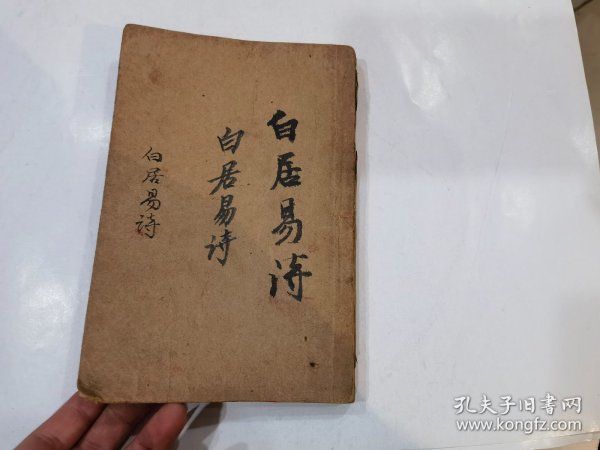 白居易诗
白居易诗
白居易诗
孔夫子旧书网
www.kongfz.com